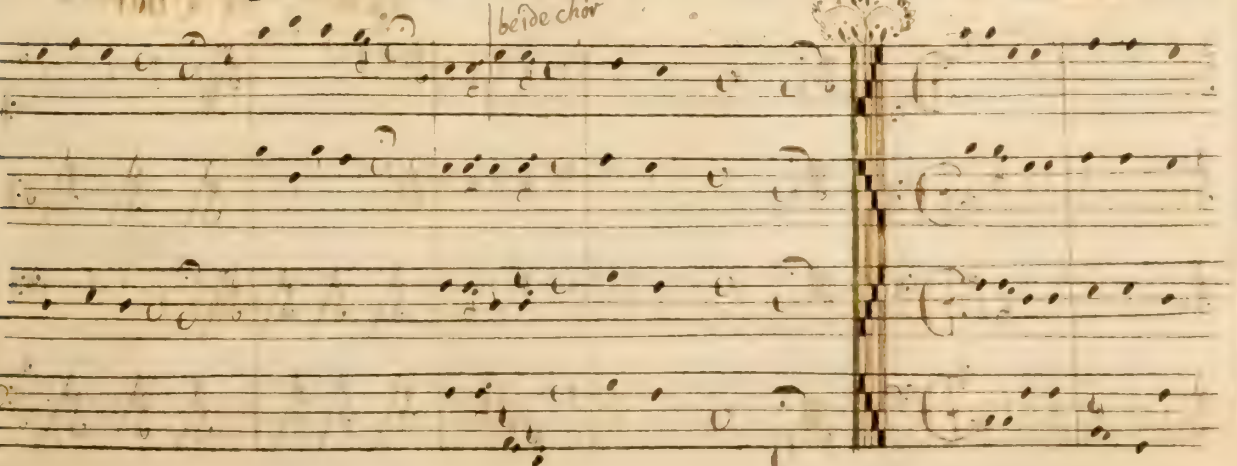 beide chor